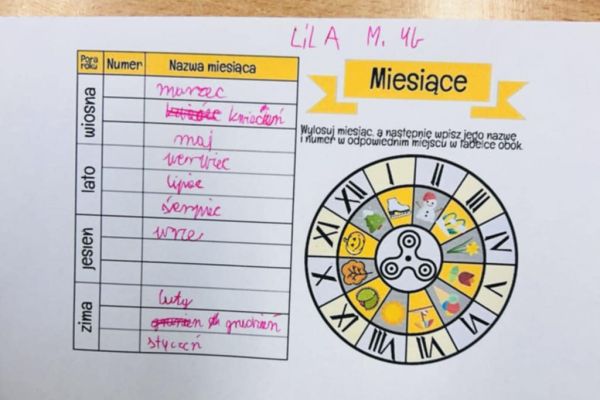 LiLA M. 4b
Miesiące
Wylosuj miesiąc, a następnie wpisz jego nazwę
i numer w odpowiednim miejscu w tabelce obok.
Pora roku Numer Nazwa miesiąca
wiosna
marzec
kwiecień
maj
lato
czerwiec
lipiec
sierpień
jesień
wrze
zima
luty
grudzień
styczeń
I II III IV V VI VII VIII IX X XI XII